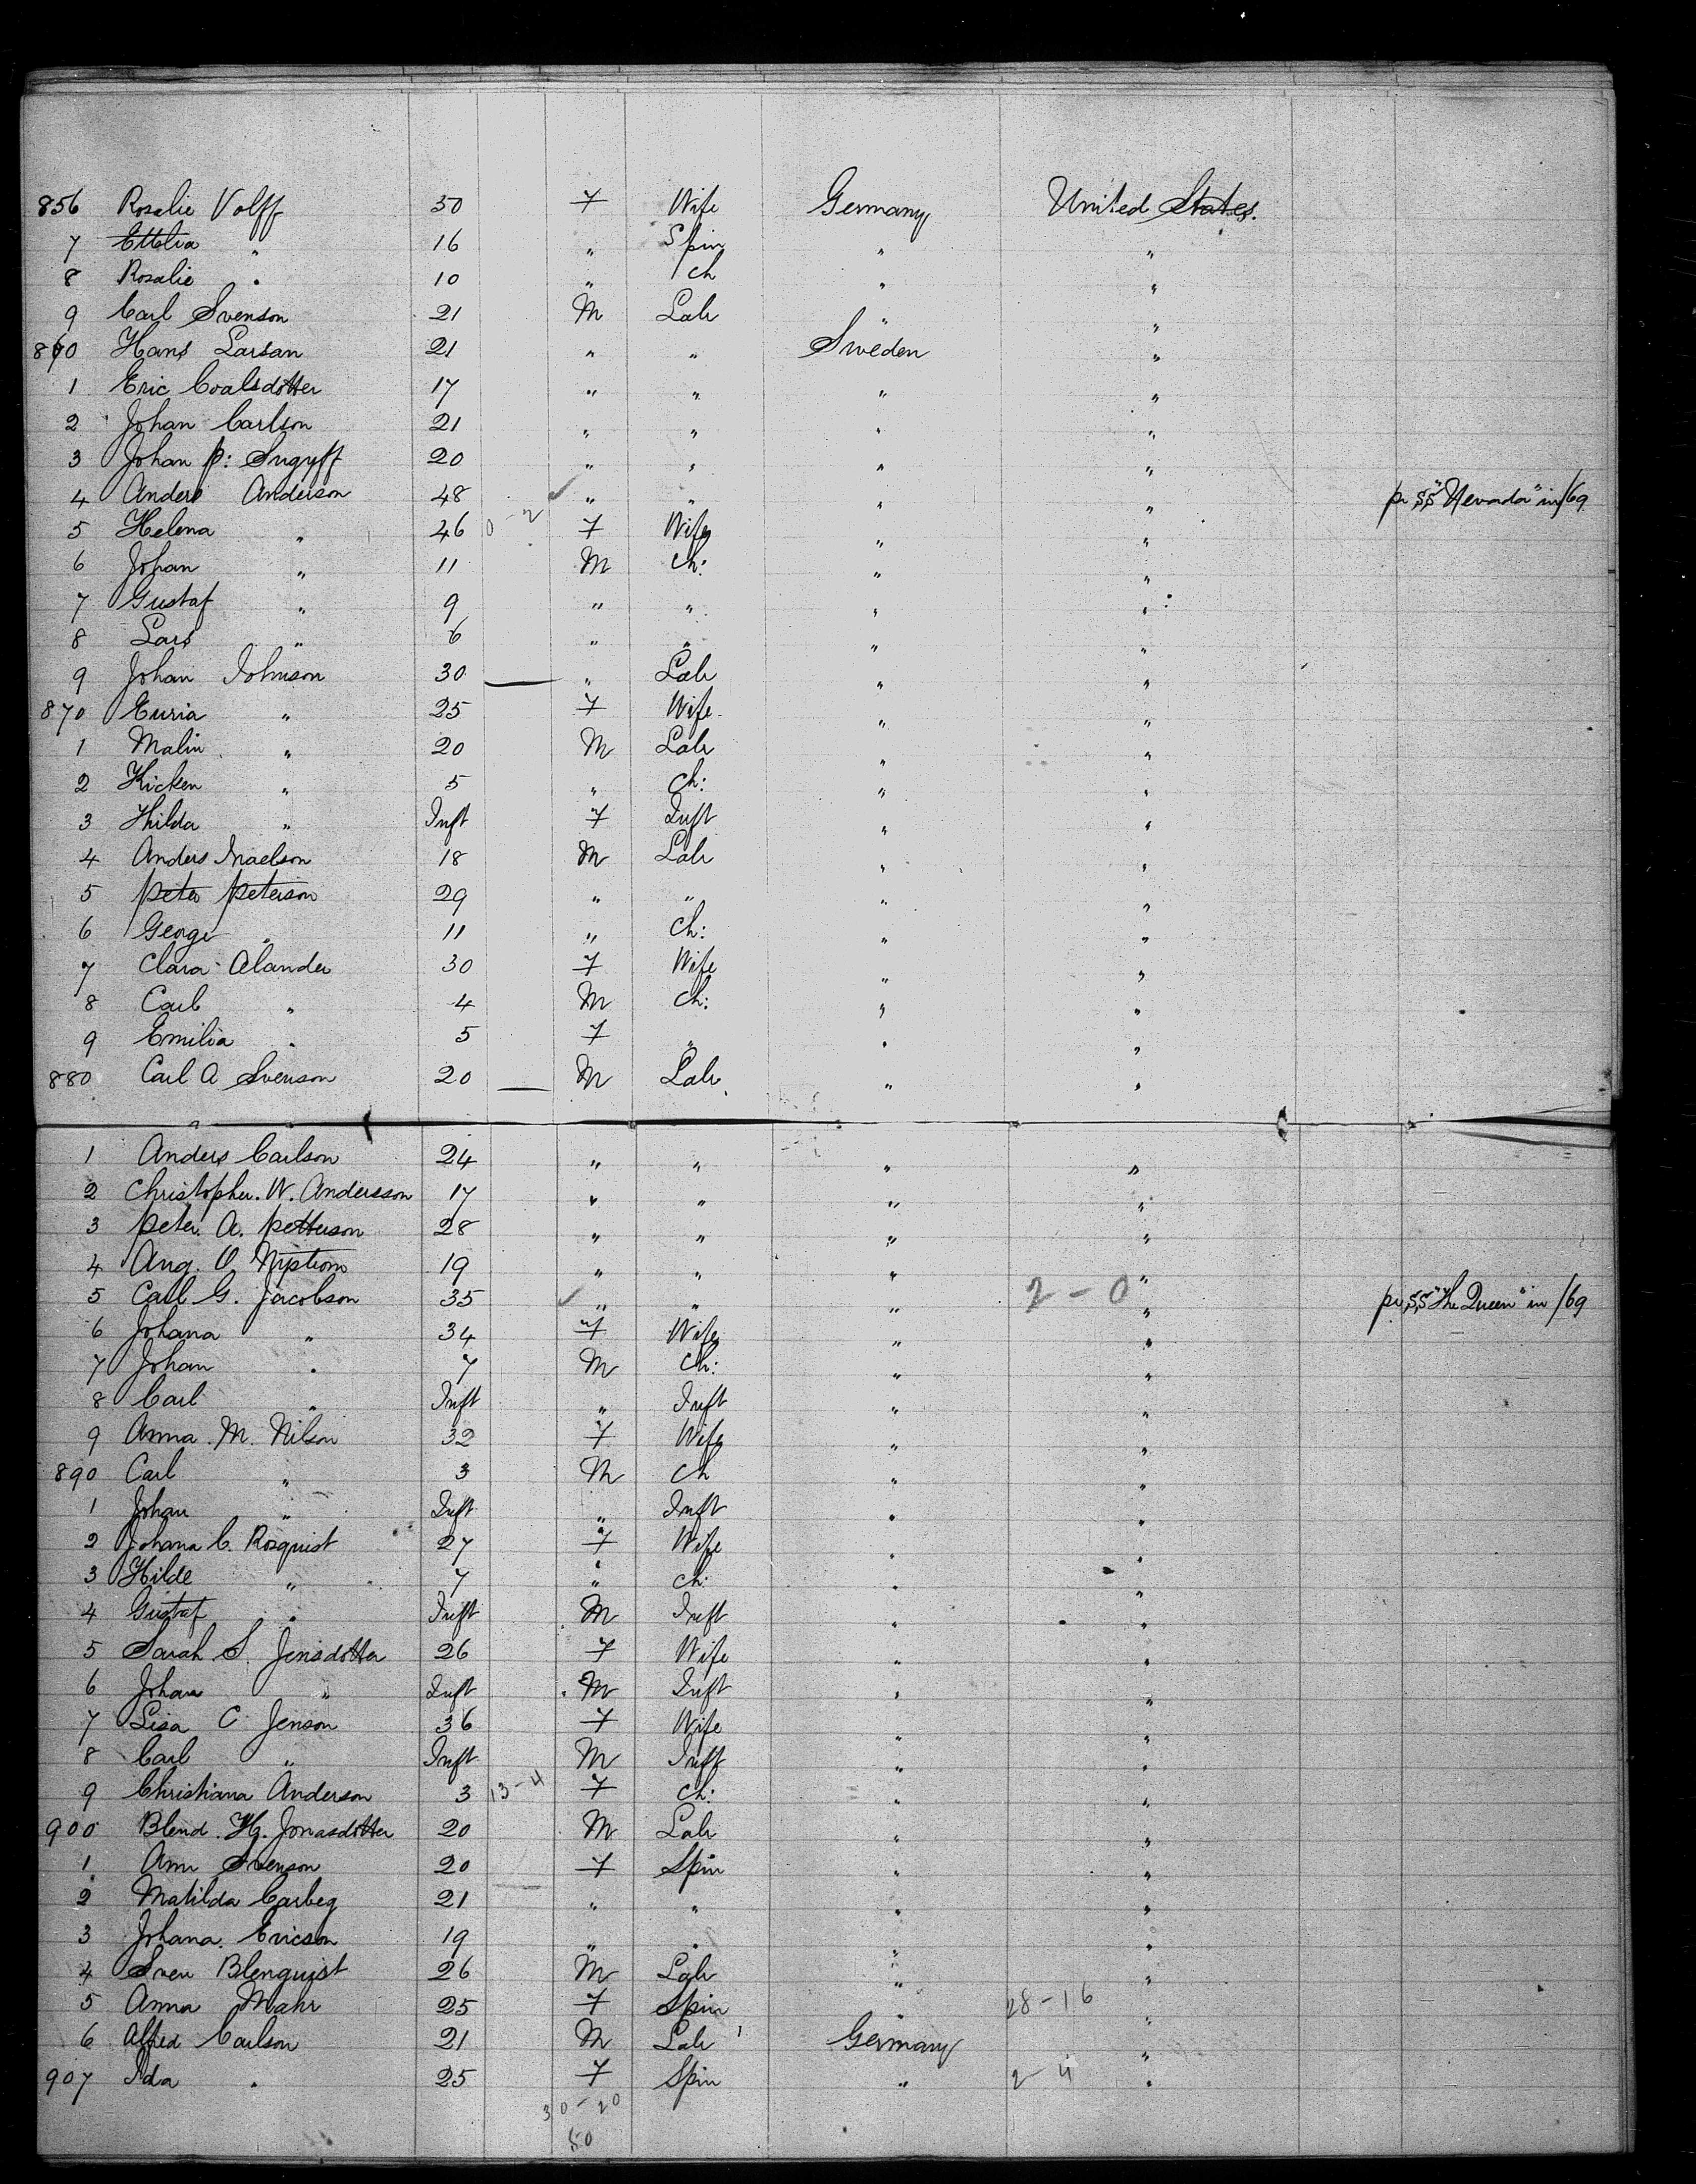 856 Rosalie Volff 50 F Wife Germany United States.
7 Ettelia " 16 " Spin " "
8 Rosalie " 10 " Ch " "
9 Carl Svenson 21 M Lab " "
860 Hans Larsan 21 " " Sweden "
1 Eric Coalsdotter 17 " " " "
2 Johan Carlson 21 " " " "
3 Johan P: 20 " " " "
4 Anders Anderson 48 " " " " pr SS "Nevada" in /69
5 Helena " 46 0-2 F Wife " "
6 Johan " 11 M Ch: " "
7 Gustaf " 9 " " " "
8 Lars " 6 " " " "
9 Johan Johnson 30 " Lab " "
870 Euria " 25 F Wife " "
1 Malin " 20 M Lab " "
2 Kicken " 5 " Ch: " "
3 Hilda " Inft F Inft " "
4 Anders 18 M Lab " "
5 Peter Peterson 29 " " " "
6 George " 11 " Ch: " "
7 Clara Alander 30 F Wife " "
8 Carl " 4 M Ch: " "
9 Emilia " 5 F " " "
880 Carl A Svenson 20 M Lab " "
1 Anders Carlson 24 " " " "
2 Christopher. W. Andersson 17 " " " "
3 Peter. A. Petterson 28 " " " "
4 Aug. O. 19 " " " "
5 Carl G. Jacobson 35 " " " 2-0 " pr SS "The Queen" in /69
6 Johana " 34 F Wife " "
7 Johan " 7 M Ch: " "
8 Carl " Inft " Inft " "
9 Anna. M. Nilson 32 F Wife " "
890 Carl " 3 M Ch " "
1 Johan " Inft " Inft " "
2 Johana C. Rosquist 27 F Wife " "
3 Hilde " 7 " Ch: " "
4 Gustaf " Inft M Inft " "
5 Sarah S. Jensdotter 26 F Wife " "
6 Johan " Inft M Inft " "
7 Lisa C Jenson 36 F Wife " "
8 Carl " Inft M Inft " "
9 Christiana Anderson 3 13-4 F Ch: " "
900 Blend. Hg. Jonasdotter 20 M Lab " "
1 Ann Svenson 20 F Spin " "
2 Matilda Carbeg 21 " " " "
3 Johana. Ericson 19 " " " "
4 Sven Blenquist 26 M Lab " "
5 Anna Mahr 25 F Spin " 28-16 "
6 Alfred Carlson 21 M Lab Germany "
907 Ida " 25 F Spin " 2-4 "
30-20
50